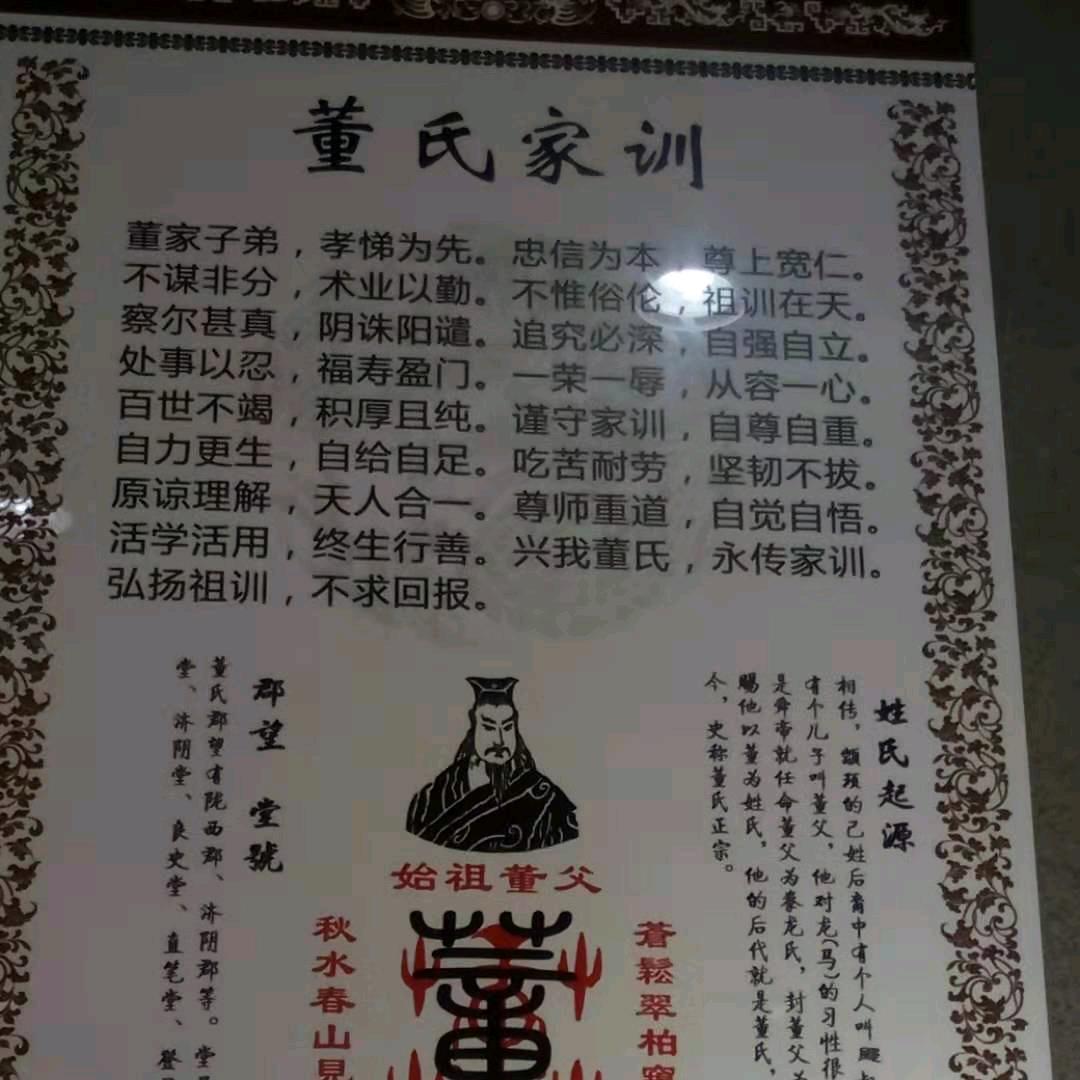 董氏家训
董家子弟，孝悌为先。忠信为本，尊上宽仁。
不谋非分，术业以勤。不惟俗伦，祖训在天。
察尔甚真，阴诛阳谴。追究必深，自强自立。
处事以忍，福寿盈门。一荣一辱，从容一心。
百世不竭，积厚且纯。谨守家训，自尊自重。
自力更生，自给自足。吃苦耐劳，坚韧不拔。
原谅理解，天人合一。尊师重道，自觉自悟。
活学活用，终生行善。兴我董氏，永传家训。
弘扬祖训，不求回报。
姓氏起源
相传，颛顼的己姓后裔中有个人叫飂
有个儿子叫董父，他对龙(马)的习性很
是舜帝就任命董父为豢龙氏，封董父
赐他以董为姓氏，他的后代就是董氏，
今，史称董氏正宗。
始祖董父
董
蒼鬆翠柏窺
秋水春山見
郡望堂號
董氏郡望有陇西郡、济阴郡等。堂
堂、济阴堂、良史堂、直笔堂、